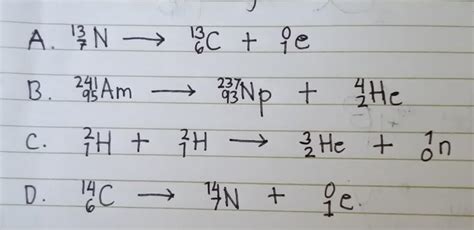 A. ¹³₇N ⟶ ¹³₆C + ⁰₁e
B. ²⁴¹₉₅Am ⟶ ²³⁷₉₃Np + ⁴₂He
C. ²₁H + ²₁H ⟶ ³₂He + ¹₀n
D. ¹⁴₆C ⟶ ¹⁴₇N + ⁰₁e.